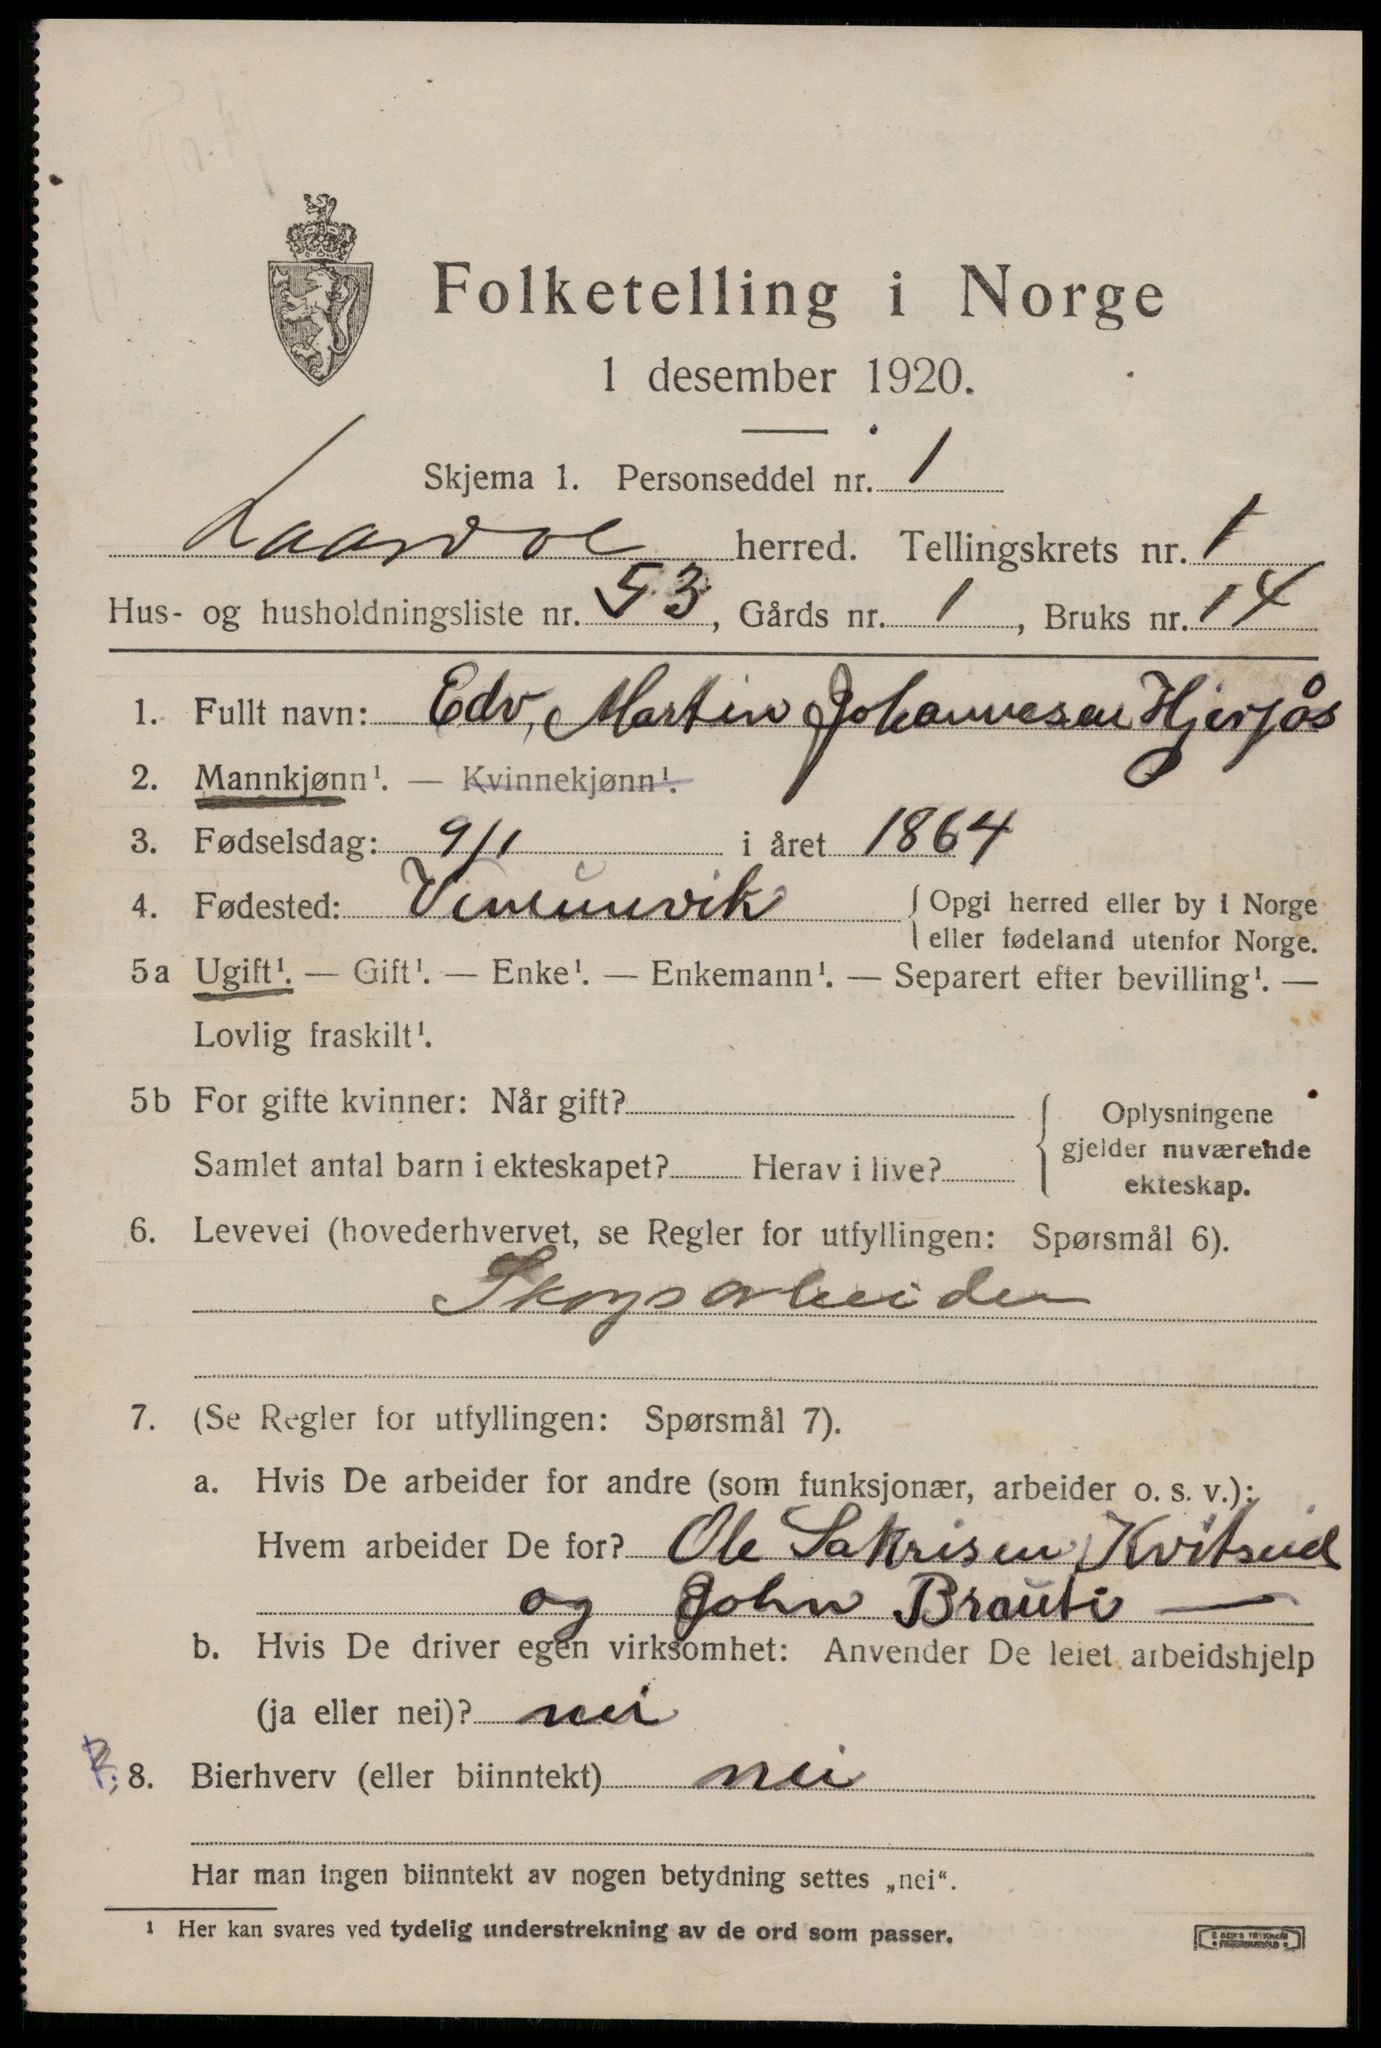 Folketelling i Norge
1 desember 1920.
Skjema 1. Personseddel nr. 1
Laardal herred. Tellingskrets nr. 1
Hus- og husholdningsliste nr. 53, Gårds nr. 1, Bruks nr. 14
1. Fullt navn: Edv. Martin Johannesen Hjersjøs
2. Mannkjønn¹. — Kvinnekjønn¹.
3. Fødselsdag: 9/1 i året 1864
4. Fødested: Vinunvik { Opgi herred eller by i Norge
eller fødeland utenfor Norge.
5a Ugift¹. — Gift¹. — Enke¹. — Enkemann¹. — Separert efter bevilling¹. —
Lovlig fraskilt¹.
5b For gifte kvinner: Når gift?
Samlet antal barn i ekteskapet? Herav i live?
Oplysningene
gjelder nuværende
ekteskap.
6. Levevei (hovederhvervet, se Regler for utfyllingen: Spørsmål 6).
Skogsarbeider
7. (Se Regler for utfyllingen: Spørsmål 7).
a. Hvis De arbeider for andre (som funksjonær, arbeider o. s. v.):
Hvem arbeider De for? Ole Sakrisen Kvitseid
og John Brauti —
b. Hvis De driver egen virksomhet: Anvender De leiet arbeidshjelp
(ja eller nei)? nei
8. Bierhverv (eller biinntekt) nei
Har man ingen biinntekt av nogen betydning settes „nei“.
¹ Her kan svares ved tydelig understrekning av de ord som passer.